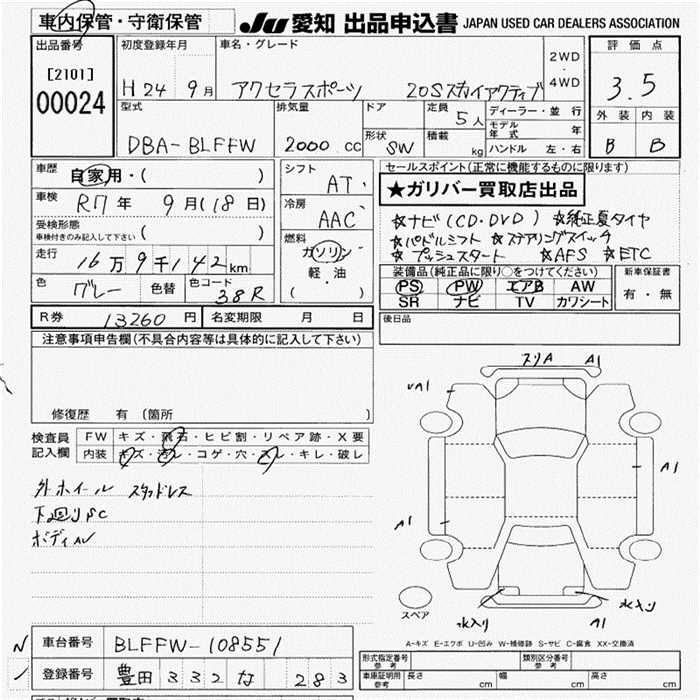 車内保管・守衛保管
JU 愛知 出品申込書 JAPAN USED CAR DEALERS ASSOCIATION
出品番号
[2101]
00024
初度登録年月
H24年 9月
車名・グレード
アクセラスポーツ 20Sスカイアクティブ
2WD
・
4WD
評価点
3.5
外装 内装
B B
型式
DBA-BLFFW
排気量
2000 cc
ドア
形状
SW
定員
5人
積載
kg
ディーラー・並行
モデル年式 年
ハンドル 左・右
車歴
自家用・( )
車検
R7年 9月(18日)
受検形態
車検付きのみ記入して下さい ( )
走行
16万9千142km
色
グレー
色替
色コード
38R
シフト
AT
冷房
AAC
燃料
ガソリン
軽・油
( )
セールスポイント(正常に機能するものに限ります)
★ガリバー買取店出品
☆ナビ(CD・DVD) ☆純正夏タイヤ
☆パドルシフト ☆ステアリングスイッチ
☆プッシュスタート ☆AFS ☆ETC
装備品(純正品に限り○をつけてください)
PS PW エアB AW
SR ナビ TV カワシート
新車保証書
有・無
R券 13260円
名変期限 月 日
後日品
注意事項申告欄(不具合内容等は具体的に記入して下さい)
修復歴 有 (箇所 )
検査員
記入欄
FW キズ・飛石・ヒビ割・リペア跡・X要
内装 キズ・汚レ・コゲ・穴・スレ・キレ・破レ
外ホイール スタッドレス
下廻りSC
ボディAU
スリA A1
UA1
A1
A1
スペア
水入り
A1
水入り
A-キズ E-エクボ U-凹み W-補修跡 S-サビ C-腐食 XX-交換済
車台番号 BLFFW-108551
登録番号 豊田 332 な 283
形式指定番号
参考
類別区分番号
参考
車庫証明用
参考
長さ cm
幅 cm
高さ cm